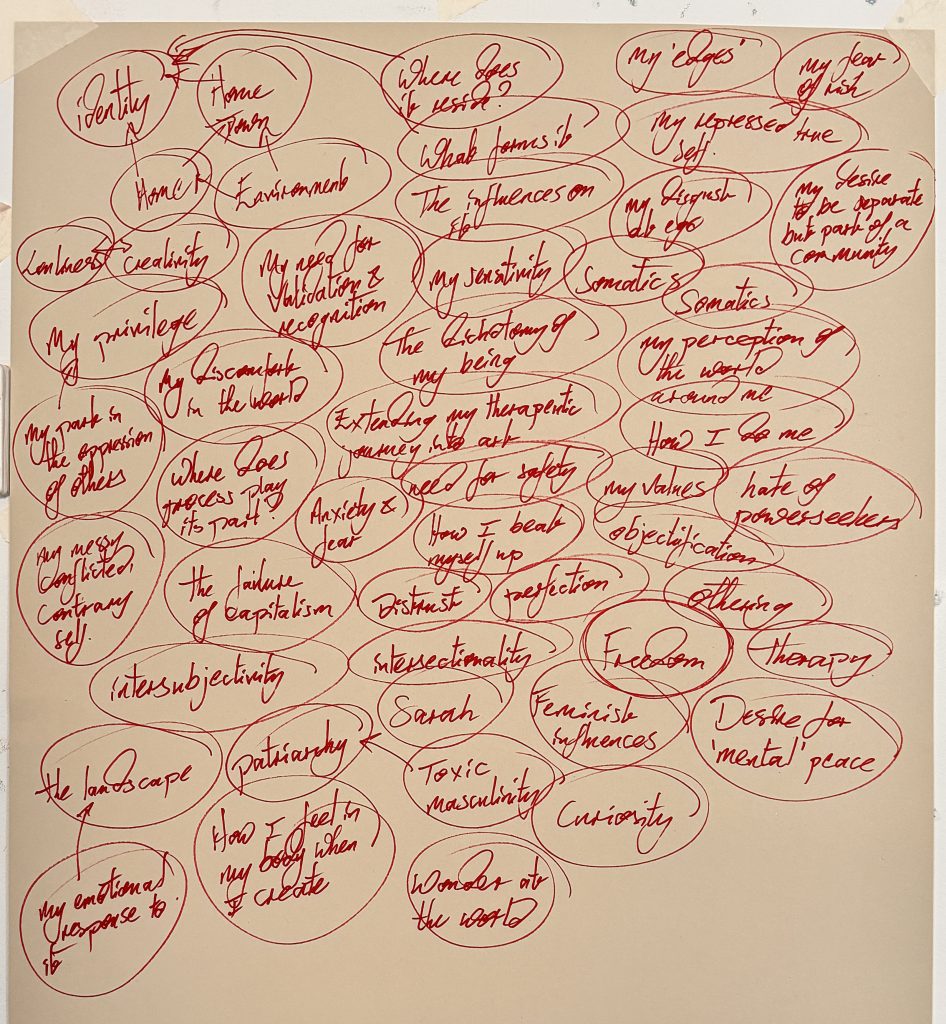 identity
Home
Town
Where does
it reside?
My 'edges'
my fear
of risk
Home
Environment
What forms it
My repressed true
self.
The influences on
it
my disgust
at ego
my desire
to be separate
but part of a
community
creativity
My need for
validation &
recognition
My sensitivity
Somatics
Somatics
My privilege
My discomfort
in the world
the dichotomy of
my being
my perception of
the world
around me
My part in
the oppression
of others
Extending my therapeutic
journey into art
How I do me
Where does
process play
its part?
Anxiety &
fear
need for safety
my values
hate of
powerseekers
my messy
conflicted,
contrary
self.
How I beat
myself up
objectification
the failure
of capitalism
Distrust
perfection
othering
intersubjectivity
intersectionality
Freedom
therapy
Sarah
Feminist
influences
Desire for
'mental' peace
the landscape
patriarchy
Toxic
masculinity
Curiosity
How I feel in
my body when
I create
my emotional
response to
it
Wonder at
the world